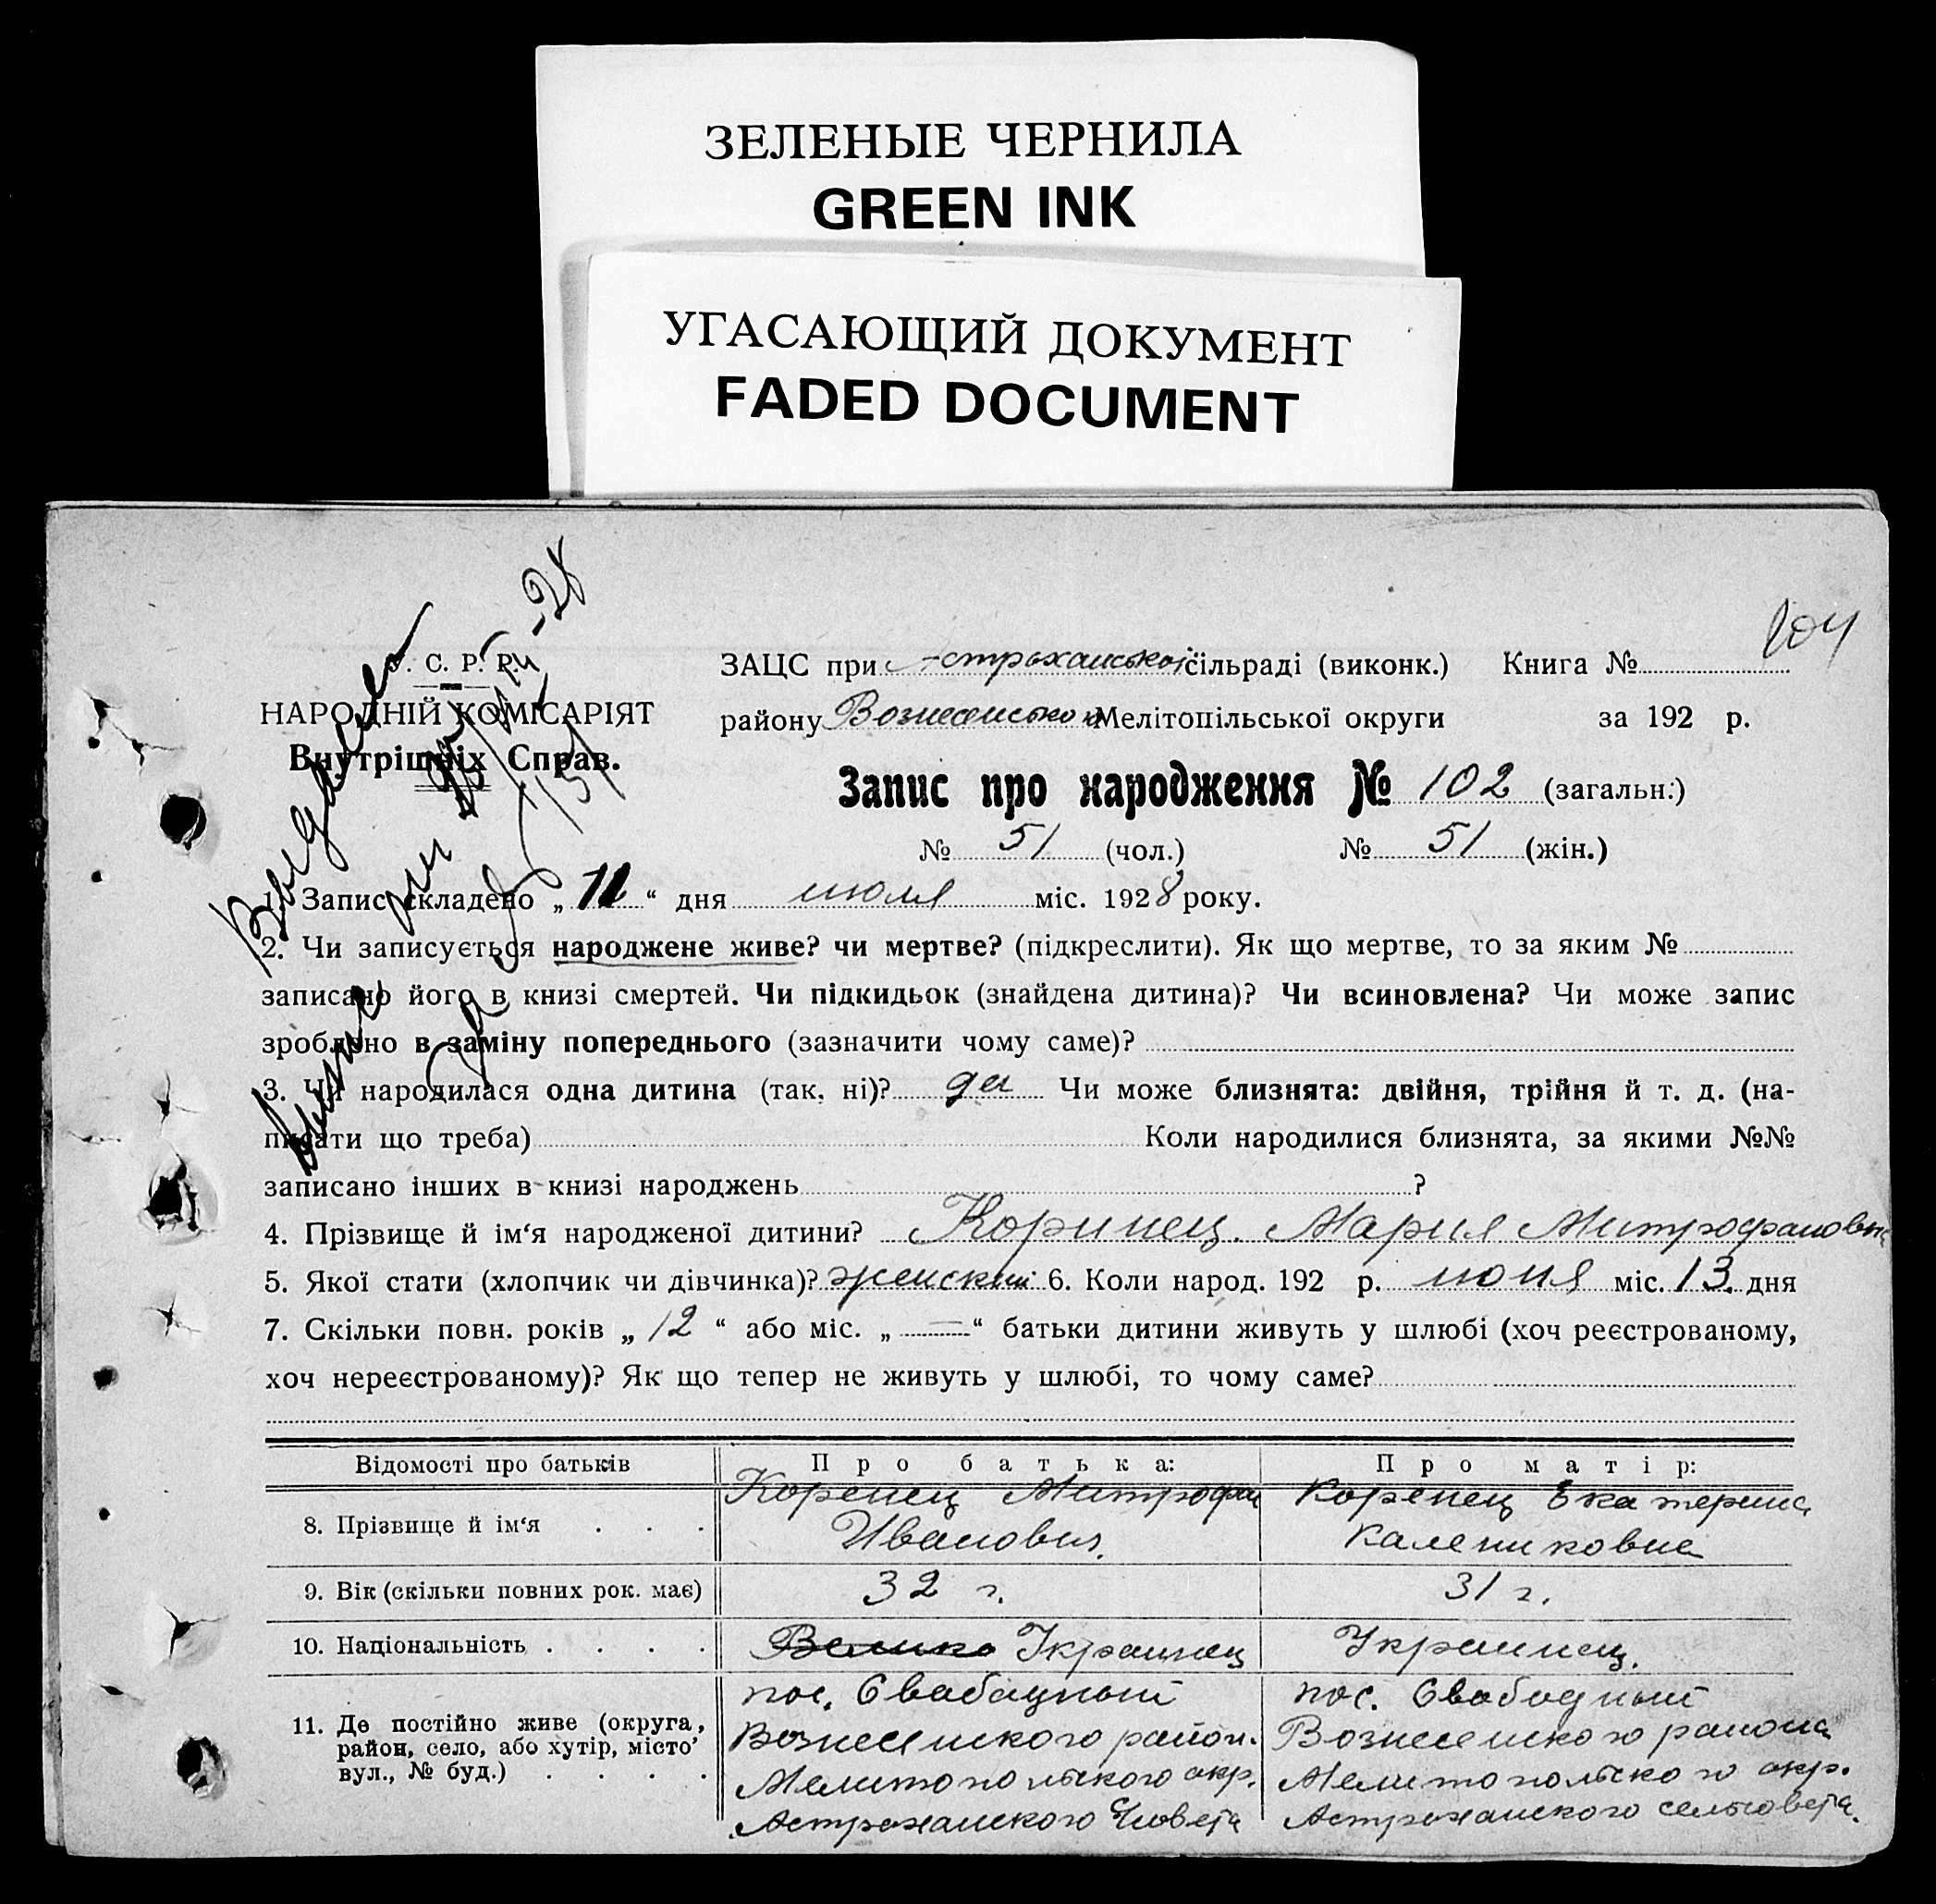 ЗЕЛЕНЫЕ ЧЕРНИЛА
GREEN INK
УГАСАЮЩИЙ ДОКУМЕНТ
FADED DOCUMENT
104
У. С. Р. Р.
НАРОДНІЙ КОМІСАРІЯТ
Внутрішніх Справ.
Выдана
-28
ЗАЦС при Астраханської сільраді (виконк.) Книга №
району Вознесенського Мелітопільської округи за 192 р.
Запис про народження № 102 (загальн.)
№ 51 (чол.) № 51 (жін.)
1. Запис складено „ 11 “ дня июля міс. 1928 року.
2. Чи записується народжене живе? чи мертве? (підкреслити). Як що мертве, то за яким №
записано його в книзі смертей. Чи підкидьок (знайдена дитина)? Чи всиновлена? Чи може запис
зроблено в заміну попереднього (зазначити чому саме)?
3. Чи народилася одна дитина (так, ні)? да Чи може близнята: двійня, трійня й т. д. (на-
писати що треба) Коли народилися близнята, за якими №№
записано інших в книзі народжень ?
4. Прізвище й ім‘я народженої дитини? Коринец Мария Митрофановна
5. Якої стати (хлопчик чи дівчинка)? женский 6. Коли народ. 192 р. июня міс. 13. дня
7. Скільки повн. років „ 12 “ або міс. „ — “ батьки дитини живуть у шлюбі (хоч реєстрованому,
хоч нереєстрованому)? Як що тепер не живуть у шлюбі, то чому саме?
Відомості про батьків Про батька: Про матір:
8. Прізвище й ім‘я . . . Коренец Митрофан Иванович. Коренец Екатерина Калениковна
9. Вік (скільки повних рок. має) 32 г. 31 г.
10. Національність . . . . Велико Украинец Украинец.
11. Де постійно живе (округа, район, село, або хутір, місто, вул., № буд.) . . . .
пос. Свабадный
Вознесенского район.
Мелитопольского окр.
Астраханского с/совета
пос. Свабодный
Вознесенского района
Мелитопольского окр.
Астраханского сельсовета.